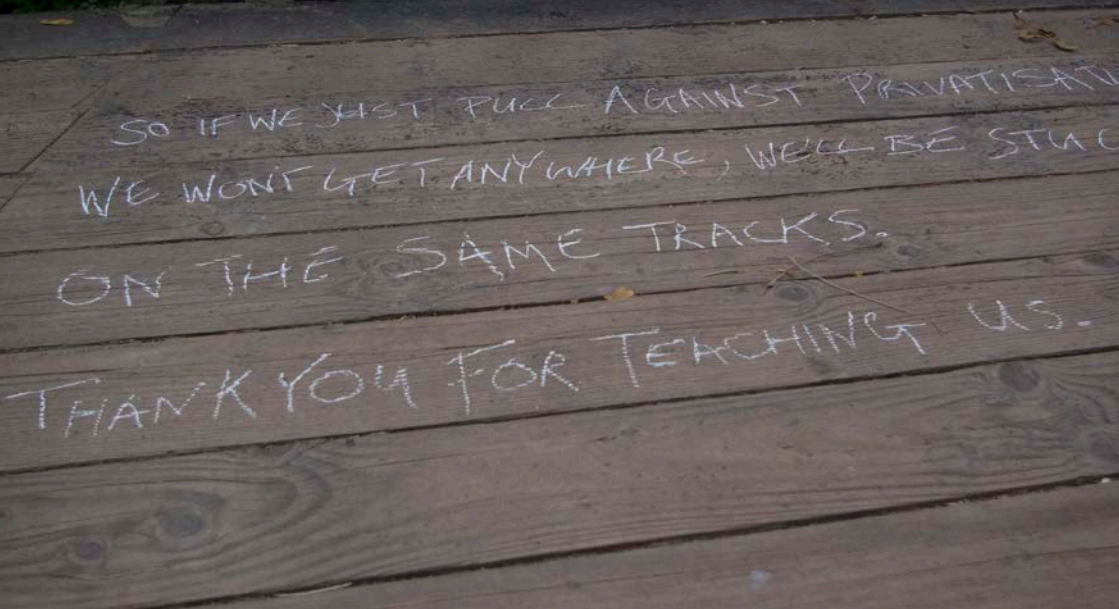 SO IF WE JUST PULL AGAINST PRIVATISATI
WE WON'T GET ANYWHERE, WE'LL BE STUC
ON THE SAME TRACKS.
THANK YOU FOR TEACHING US.